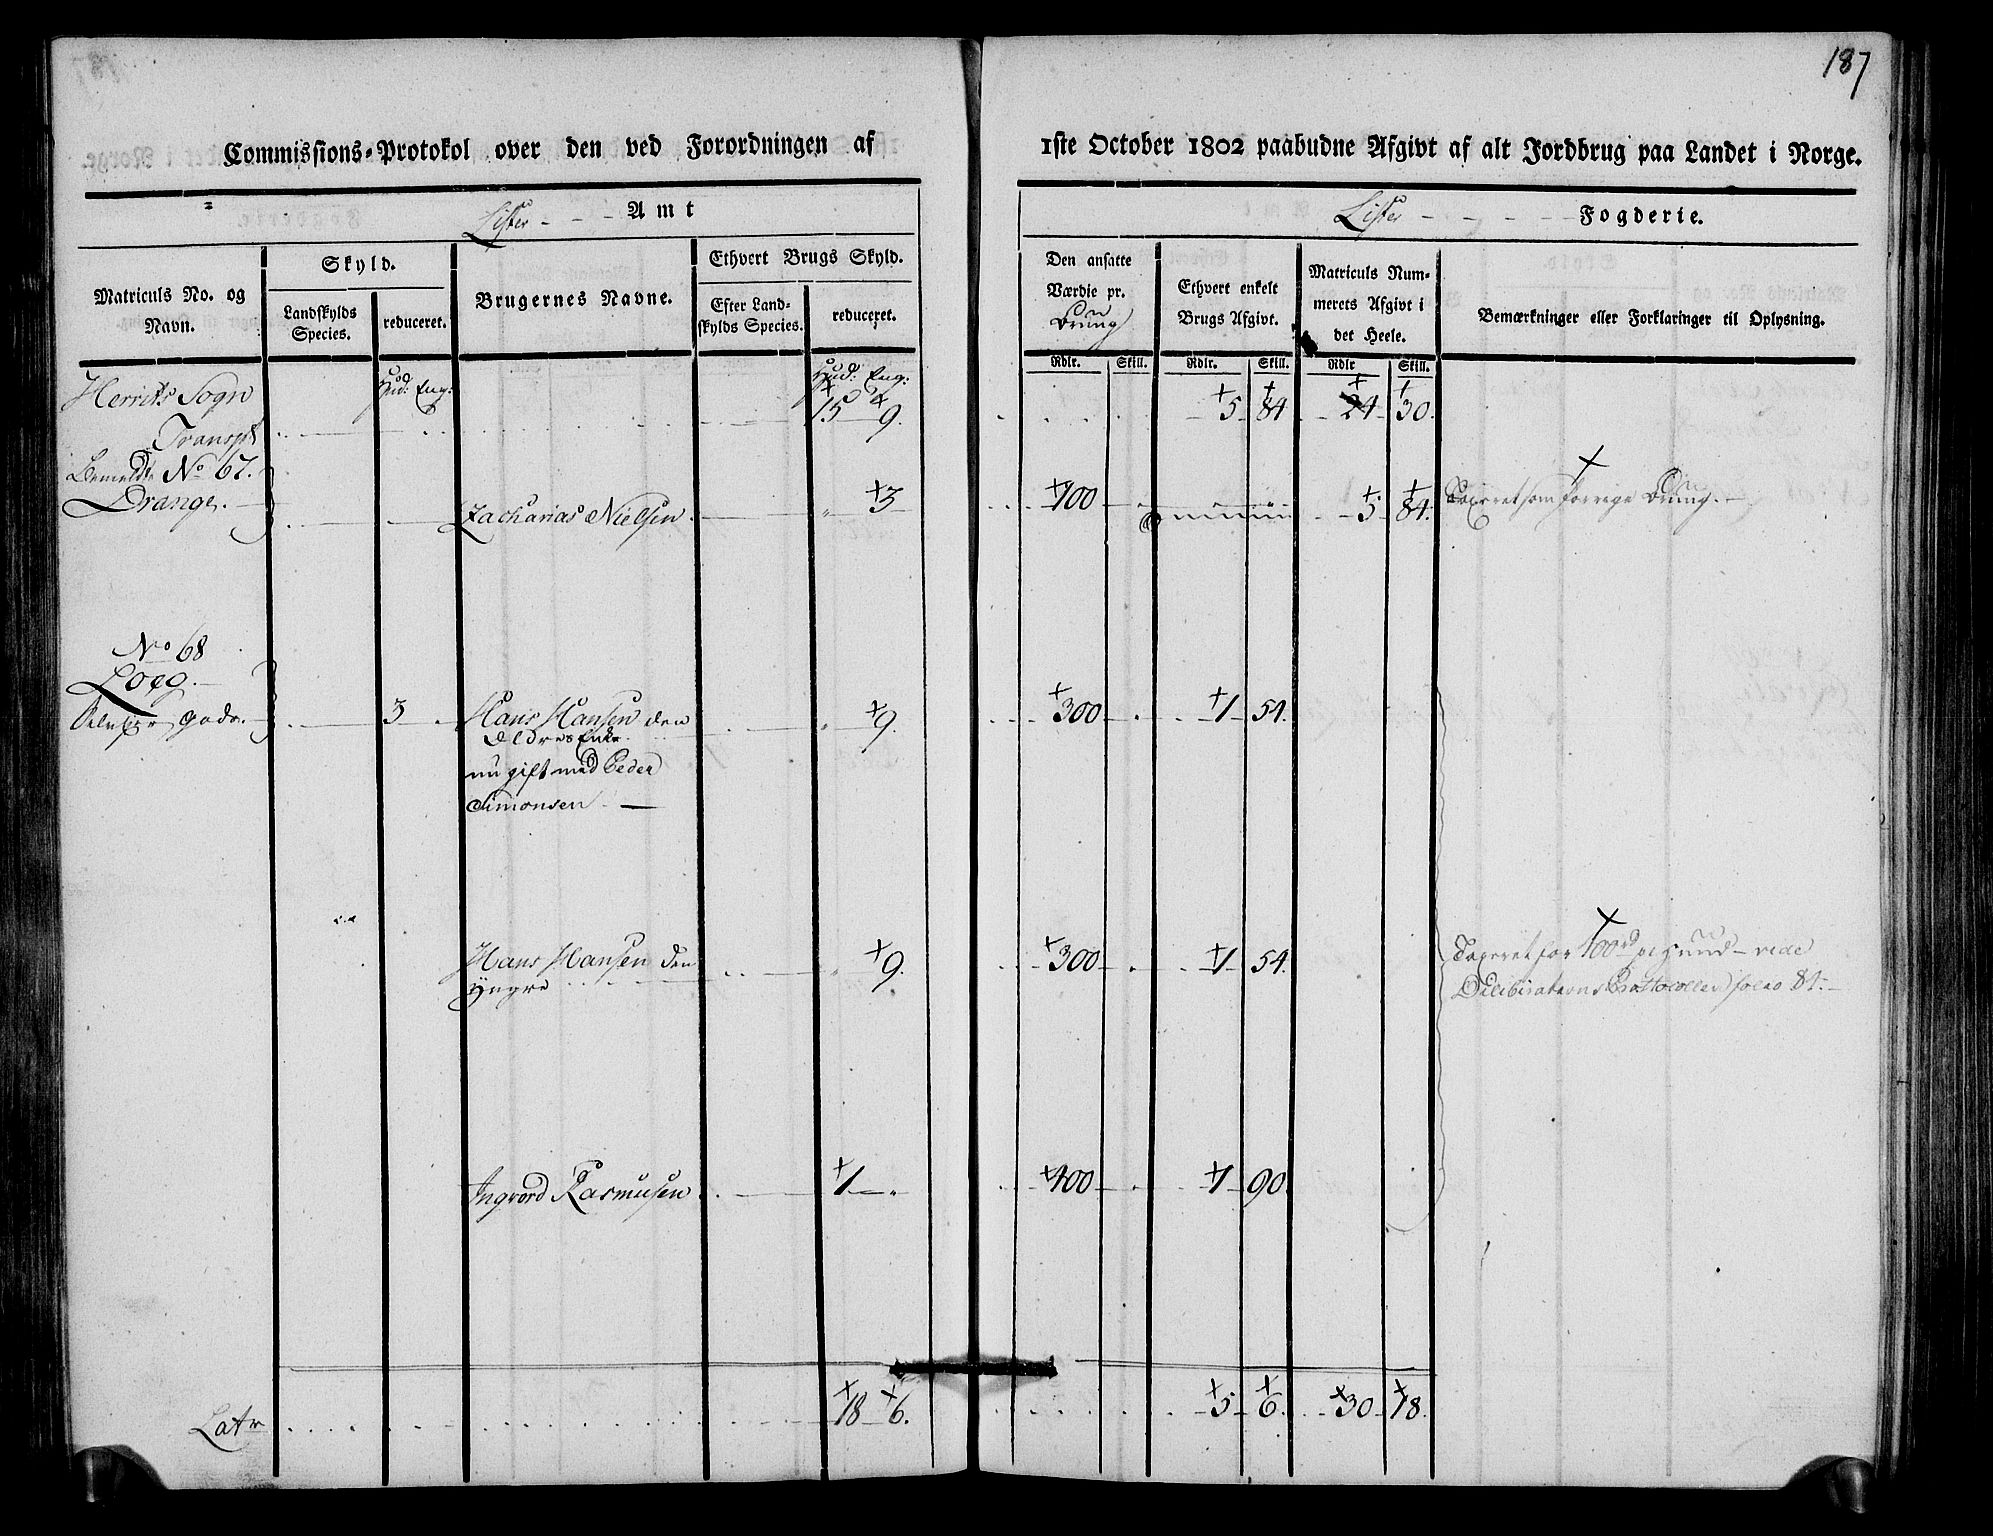 187
Commissions-Protokol over den ved Forordningen af 1ste October 1802 paabudne Afgivt af alt Jordbrug paa Landet i Norge.
Lister - - - Amt
Lister - - - - Fogderie.
Matriculs No. og Navn.
Skyld.
Landskylds Species.
reduceret.
Brugernes Navne.
Ethvert Brugs Skyld.
Efter Landskylds Species.
reduceret.
Den ansatte Værdie pr. Brug
Ethvert enkelt Brugs Afgivt.
Matriculs Nummerets Afgivt i det Heele.
Bemærkninger eller Forklaringer til Oplysning.
Rdlr. Skill. Rdlr. Skill. Rdlr Skill.
Hud: Eng: Hud: Eng:
Herrits Sogn
Transpt 15 9. 5 84 24 30.
Bemeldte No 67.
Drange. Zacharias Nielsen. 3 400 5 84. Taxeret som forrige Brug.
No 68
Loeg.
gods. 3 Hans Hansen den 9. 300 1 54.
Eldres Enke
nu gift med Peder
Simonsen
Hans Hansen den 9. 300 1 54. Taxeret for 100rd pr Huud - vide
Yngre Deliberations Protocollen folio 81.
Ingvord Rasmusen 1 " 400 1 90
Latr 18 6. 5 6. 30 18.